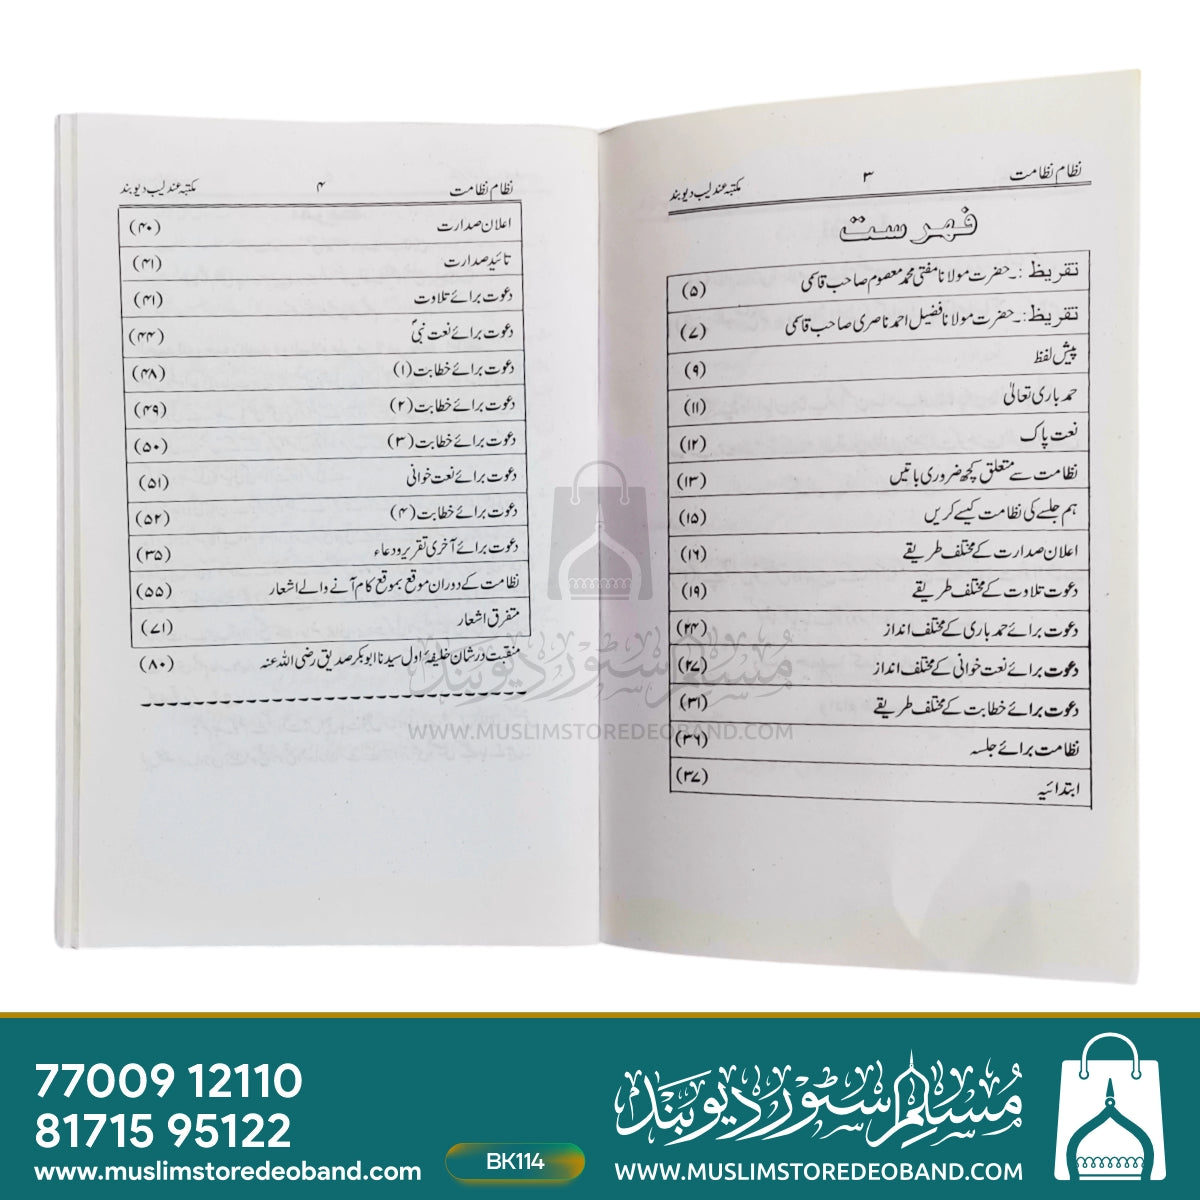 نظام نظامت ۳ مکتبہ عندلیب دیوبند
فہرست
تقریظ :۔ حضرت مولانا مفتی محمد معصوم صاحب قاسمی (۵)
تقریظ :۔ حضرت مولانا فضیل احمد ناصری صاحب قاسمی (۷)
پیش لفظ (۹)
حمد باری تعالیٰ (۱۱)
نعت پاک (۱۲)
نظامت سے متعلق کچھ ضروری باتیں (۱۳)
ہم جلسے کی نظامت کیسے کریں (۱۵)
اعلان صدارت کے مختلف طریقے (۱۶)
دعوت تلاوت کے مختلف طریقے (۱۹)
دعوت برائے حمد باری کے مختلف انداز (۲۴)
دعوت برائے نعت خوانی کے مختلف انداز (۲۷)
دعوت برائے خطابت کے مختلف طریقے (۳۱)
نظامت برائے جلسہ (۳۶)
ابتدائیہ (۳۷)
نظام نظامت ۴ مکتبہ عندلیب دیوبند
اعلان صدارت (۴۰)
تائید صدارت (۴۱)
دعوت برائے تلاوت (۴۱)
دعوت برائے نعت نبیؐ (۴۴)
دعوت برائے خطابت (۱) (۴۸)
دعوت برائے خطابت (۲) (۴۹)
دعوت برائے خطابت (۳) (۵۰)
دعوت برائے نعت خوانی (۵۱)
دعوت برائے خطابت (۴) (۵۲)
دعوت برائے آخری تقریر و دعاء (۳۵)
نظامت کے دوران موقع بموقع کام آنے والے اشعار (۵۵)
متفرق اشعار (۷۱)
منقبت در شان خلیفۂ اول سیدنا ابوبکر صدیق رضی اللہ عنہ (۸۰)
مسلم سٹور دیوبند
WWW.MUSLIMSTOREDEOBAND.COM
77009 12110
81715 95122
www.muslimstoredeoband.com
BK114
مسلم سٹور دیوبند
WWW.MUSLIMSTOREDEOBAND.COM